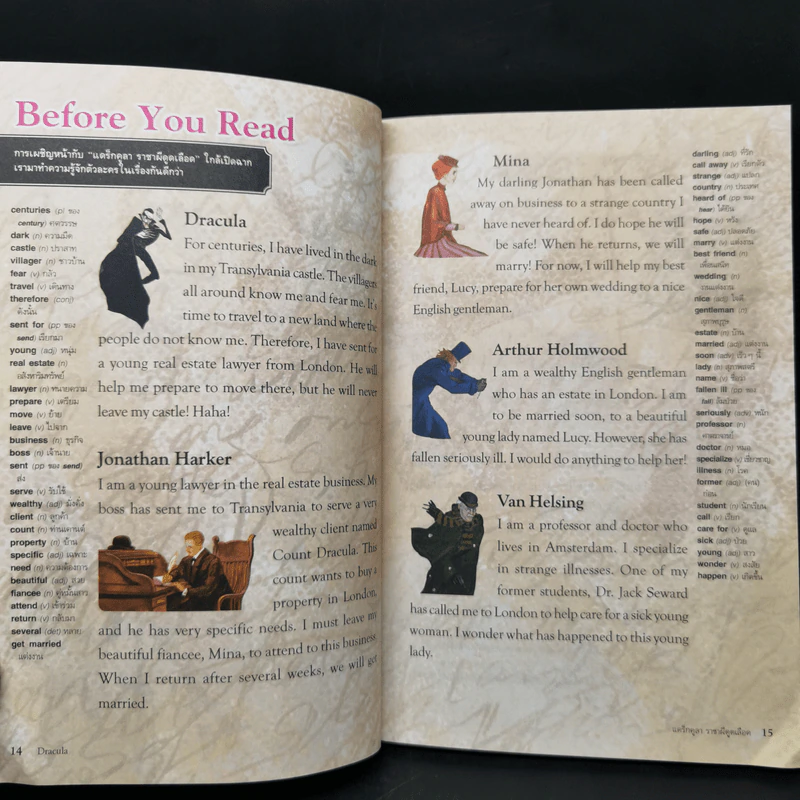 Before You Read
การเผชิญหน้ากับ "แดร็กคูลา ราชาผีดูดเลือด" ใกล้เปิดฉาก
เรามาทำความรู้จักตัวละครในเรื่องกันดีกว่า
centuries (pl ของ
century) ศตวรรษ
dark (n) ความมืด
castle (n) ปราสาท
villager (n) ชาวบ้าน
fear (v) กลัว
travel (v) เดินทาง
therefore (conj)
ดังนั้น
sent for (pp ของ
send) เรียกมา
young (adj) หนุ่ม
real estate (n)
อสังหาริมทรัพย์
lawyer (n) ทนายความ
prepare (v) เตรียม
move (v) ย้าย
leave (v) ไปจาก
business (n) ธุรกิจ
boss (n) เจ้านาย
sent (pp ของ send)
ส่ง
serve (v) รับใช้
wealthy (adj) มั่งคั่ง
client (n) ลูกค้า
count (n) ท่านเคานต์
property (n) บ้าน
specific (adj) เฉพาะ
need (n) ความต้องการ
beautiful (adj) สวย
fiancee (n) คู่หมั้นสาว
attend (v) เข้าร่วม
return (v) กลับมา
several (det) หลาย
get married
แต่งงาน
Dracula
For centuries, I have lived in the dark
in my Transylvania castle. The villagers
all around know me and fear me. It's
time to travel to a new land where the
people do not know me. Therefore, I have sent for
a young real estate lawyer from London. He will
help me prepare to move there, but he will never
leave my castle! Haha!
Jonathan Harker
I am a young lawyer in the real estate business. My
boss has sent me to Transylvania to serve a very
wealthy client named
Count Dracula. This
count wants to buy a
property in London,
and he has very specific needs. I must leave my
beautiful fiancee, Mina, to attend to this business.
When I return after several weeks, we will get
married.
14 Dracula
Mina
My darling Jonathan has been called
away on business to a strange country I
have never heard of. I do hope he will
be safe! When he returns, we will
marry! For now, I will help my best
friend, Lucy, prepare for her own wedding to a nice
English gentleman.
Arthur Holmwood
I am a wealthy English gentleman
who has an estate in London. I am
to be married soon, to a beautiful
young lady named Lucy. However, she has
fallen seriously ill. I would do anything to help her!
Van Helsing
I am a professor and doctor who
lives in Amsterdam. I specialize
in strange illnesses. One of my
former students, Dr. Jack Seward
has called me to London to help care for a sick young
woman. I wonder what has happened to this young
lady.
darling (adj) ที่รัก
call away (v) เรียกตัว
strange (adj) แปลก
country (n) ประเทศ
heard of (pp ของ
hear) ได้ยิน
hope (v) หวัง
safe (adj) ปลอดภัย
marry (v) แต่งงาน
best friend (n)
เพื่อนสนิท
wedding (n)
งานแต่งงาน
nice (adj) ใจดี
gentleman (n)
สุภาพบุรุษ
estate (n) บ้าน
married (adj) แต่งงาน
soon (adv) เร็วๆ นี้
lady (n) สุภาพสตรี
name (v) ชื่อว่า
fallen ill (pp ของ
fall) ล้มป่วย
seriously (adv) หนัก
professor (n)
ศาสตราจารย์
doctor (n) หมอ
specialize (v) เชี่ยวชาญ
illness (n) โรค
former (adj) (คน)
ก่อน
student (n) นักเรียน
call (v) เรียก
care for (v) ดูแล
sick (adj) ป่วย
young (adj) สาว
wonder (v) สงสัย
happen (v) เกิดขึ้น
แดร็กคูลา ราชาผีดูดเลือด 15